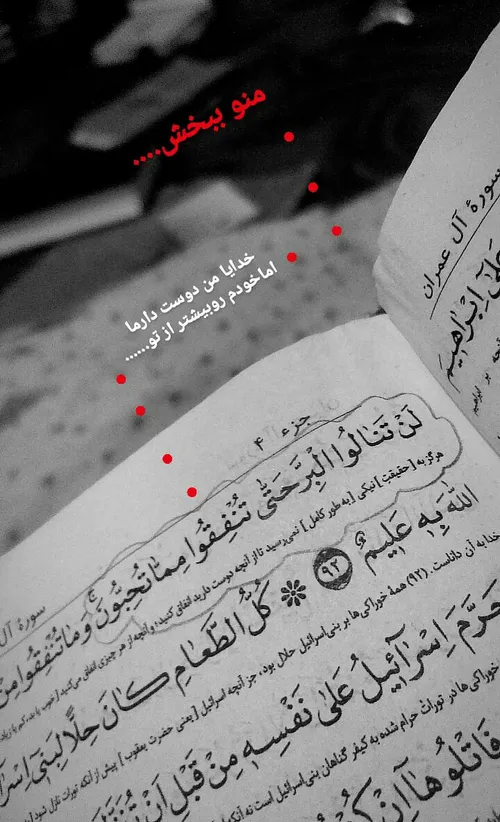 منو ببخش....
خدایا من دوست دارما
اماخودم روبیشتر از تو......
سورهٔ آل عمران
عَلىٰ إِبْرَاهِيمَ
جزء ۴
لَنْ تَنَالُوا الْبِرَّ حَتَّىٰ تُنْفِقُوا مِمَّا تُحِبُّونَ وَمَا تُنْفِقُوا مِنْ
هرگز به [حقیقتِ] نیکی [به طور کامل] نمی‌رسید تا از آنچه دوست دارید انفاق کنید، و آنچه از هر چیزی انفاق می‌کنید
اللّٰهَ بِهِ عَلِيمٌ ﴿۹۲﴾ كُلُّ الطَّعَامِ كَانَ حِلًّا لِبَنِي
خدا به آن داناست. (۹۲) همهٔ خوراکی‌ها بر بنی‌اسرائیل حلال بود، جز آنچه اسرائیل [یعنی حضرت یعقوب] پیش از آنکه تورات نازل شود
حَرَّمَ إِسْرَائِيلُ عَلَىٰ نَفْسِهِ مِنْ قَبْلِ أَنْ
خوراکی‌ها در تورات حرام شده به کیفر گناهان بنی‌اسرائیل است نه
فَاتْلُوهَا إِنْ